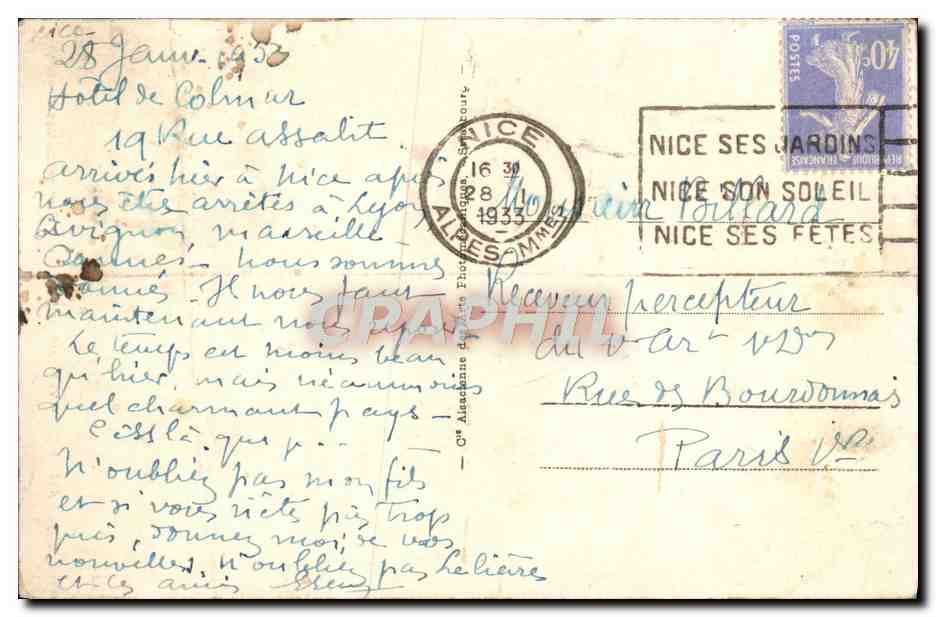 Nice
28 Janv. 1933
Hôtel de Colmar
19 Rue assalit
arrivés hier à Nice après
nous être arrêtés à Lyon
Avignon Marseille
Cannes - nous sommes
Il nous faut
maintenant nous
Le temps est moins beau
qu'hier, mais néanmoins
quel charmant pays -
C'est là que j...
N'oubliez pas mon fils
et si vous n'êtes pas trop
pris, donnez moi, de vos
nouvelles, n'oubliez pas Lelièvre
et les amis
Cie Alsacienne des Arts Photomécaniques, Strasbourg
NICE
16 30
28 I
1933
ALPES-MMES
NICE SES JARDINS
NICE SON SOLEIL
NICE SES FÊTES
40c
POSTES
REPUBLIQUE FRANÇAISE
Monsieur Billard
Receveur percepteur
du
Rue de Bourdonnais
Paris
CPAPHIL